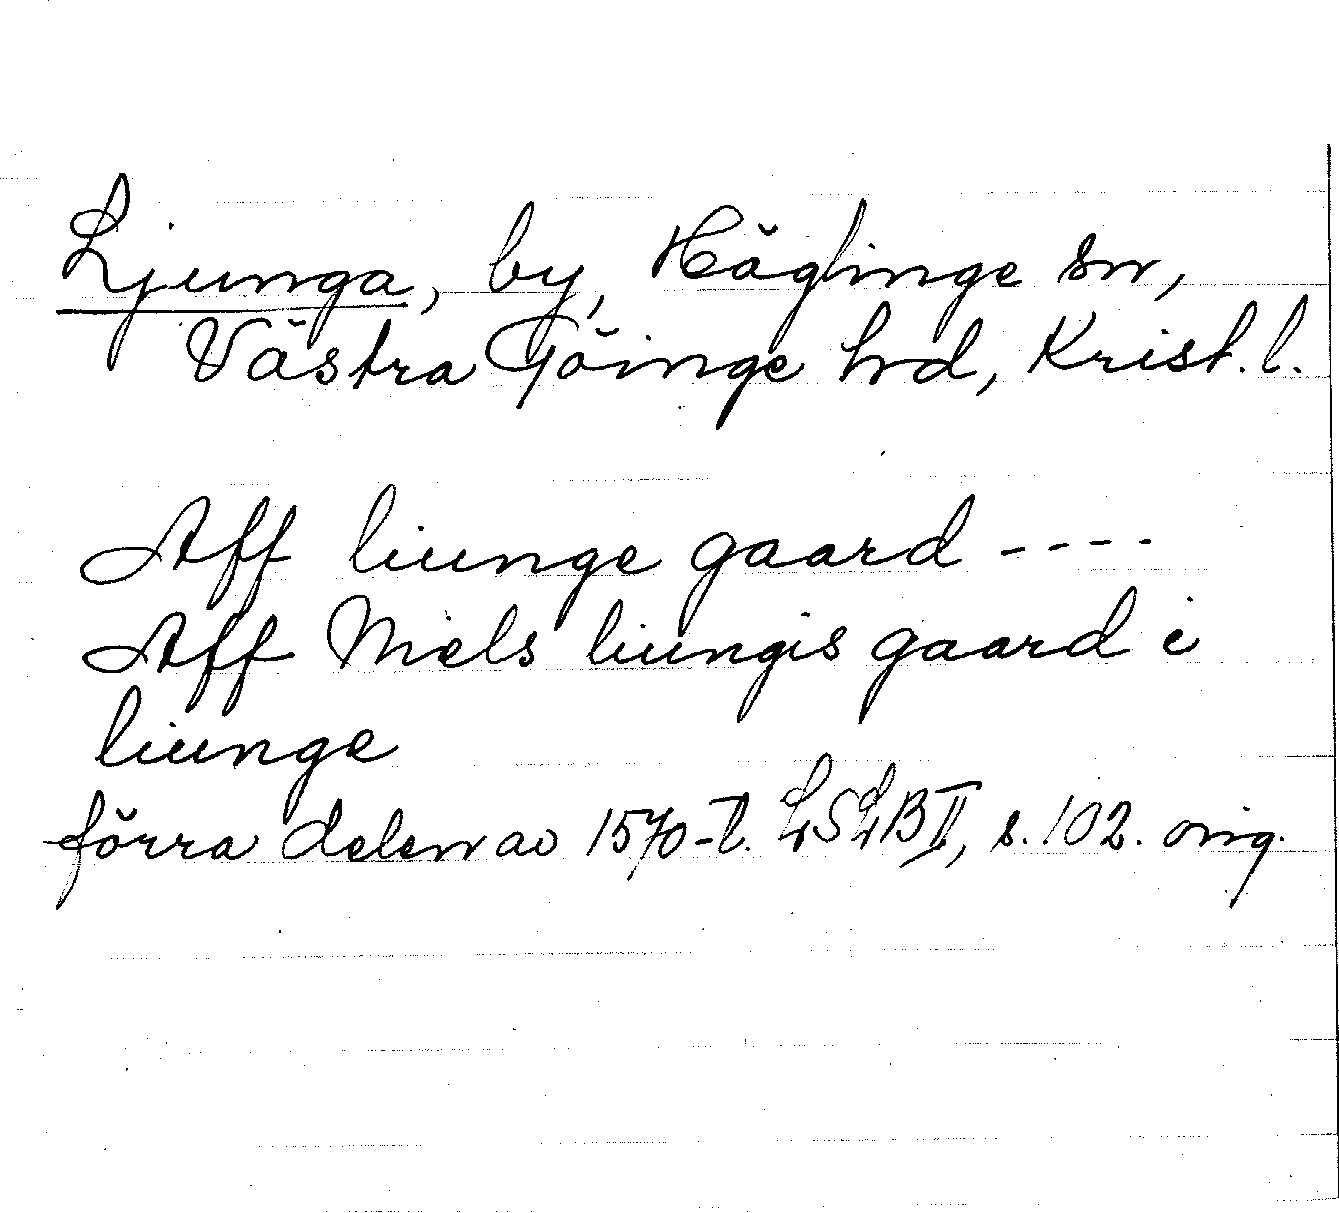 Ljunga, by, Häglinge sn,
Västra Göinge hrd, Krist. l.
Aff liunge gaard ----
Aff Niels liungis gaard i
liunge
förra delen av 1570-t. LSLB II, s. 102. orig.